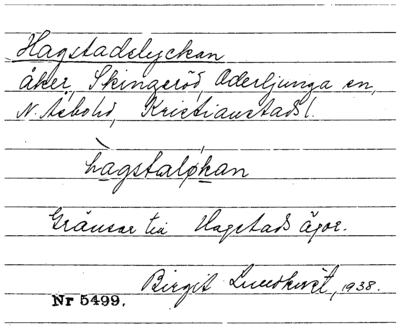 Hagstadslyckan
åker, Skingeröd, Oderljunga sn,
N. Åsbohd, Kristianstads l.
hagstaløkan
Gränsar till Hagstads ägor.
Birgit Lundkvist, 1938.
Nr 5499.